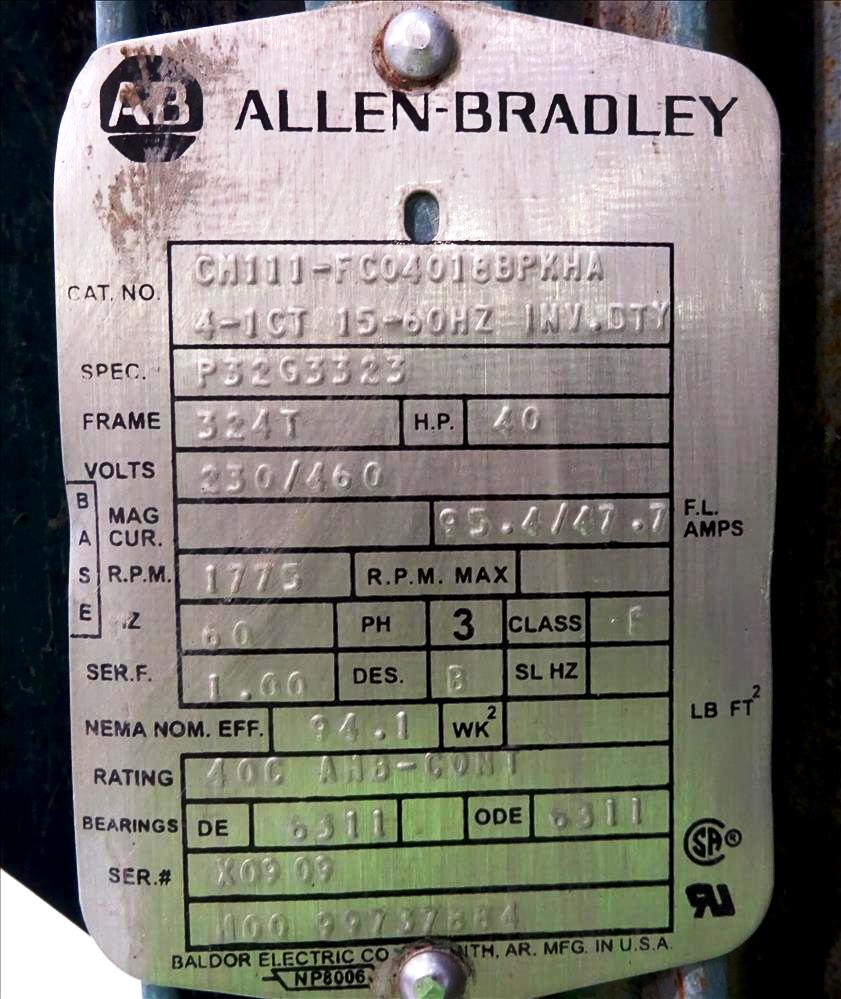 AB ALLEN-BRADLEY
CAT. NO. CM111-FC04018BPKHA
4-1CT 15-60HZ INV.DTY
SPEC. P32G3323
FRAME 324T H.P. 40
VOLTS 230/460
BASE
MAG CUR. 95.4/47.7 F.L. AMPS
R.P.M. 1775 R.P.M. MAX
Z 60 PH 3 CLASS F
SER.F. 1.00 DES. B SL HZ
NEMA NOM. EFF. 94.1 WK2 LB FT2
RATING 40C AMB-CONT
BEARINGS DE 6311 ODE 6311
SER.# X09 09
SA®
RU
BALDOR ELECTRIC CO TH, AR. MFG. IN U.S.A.
NP8006